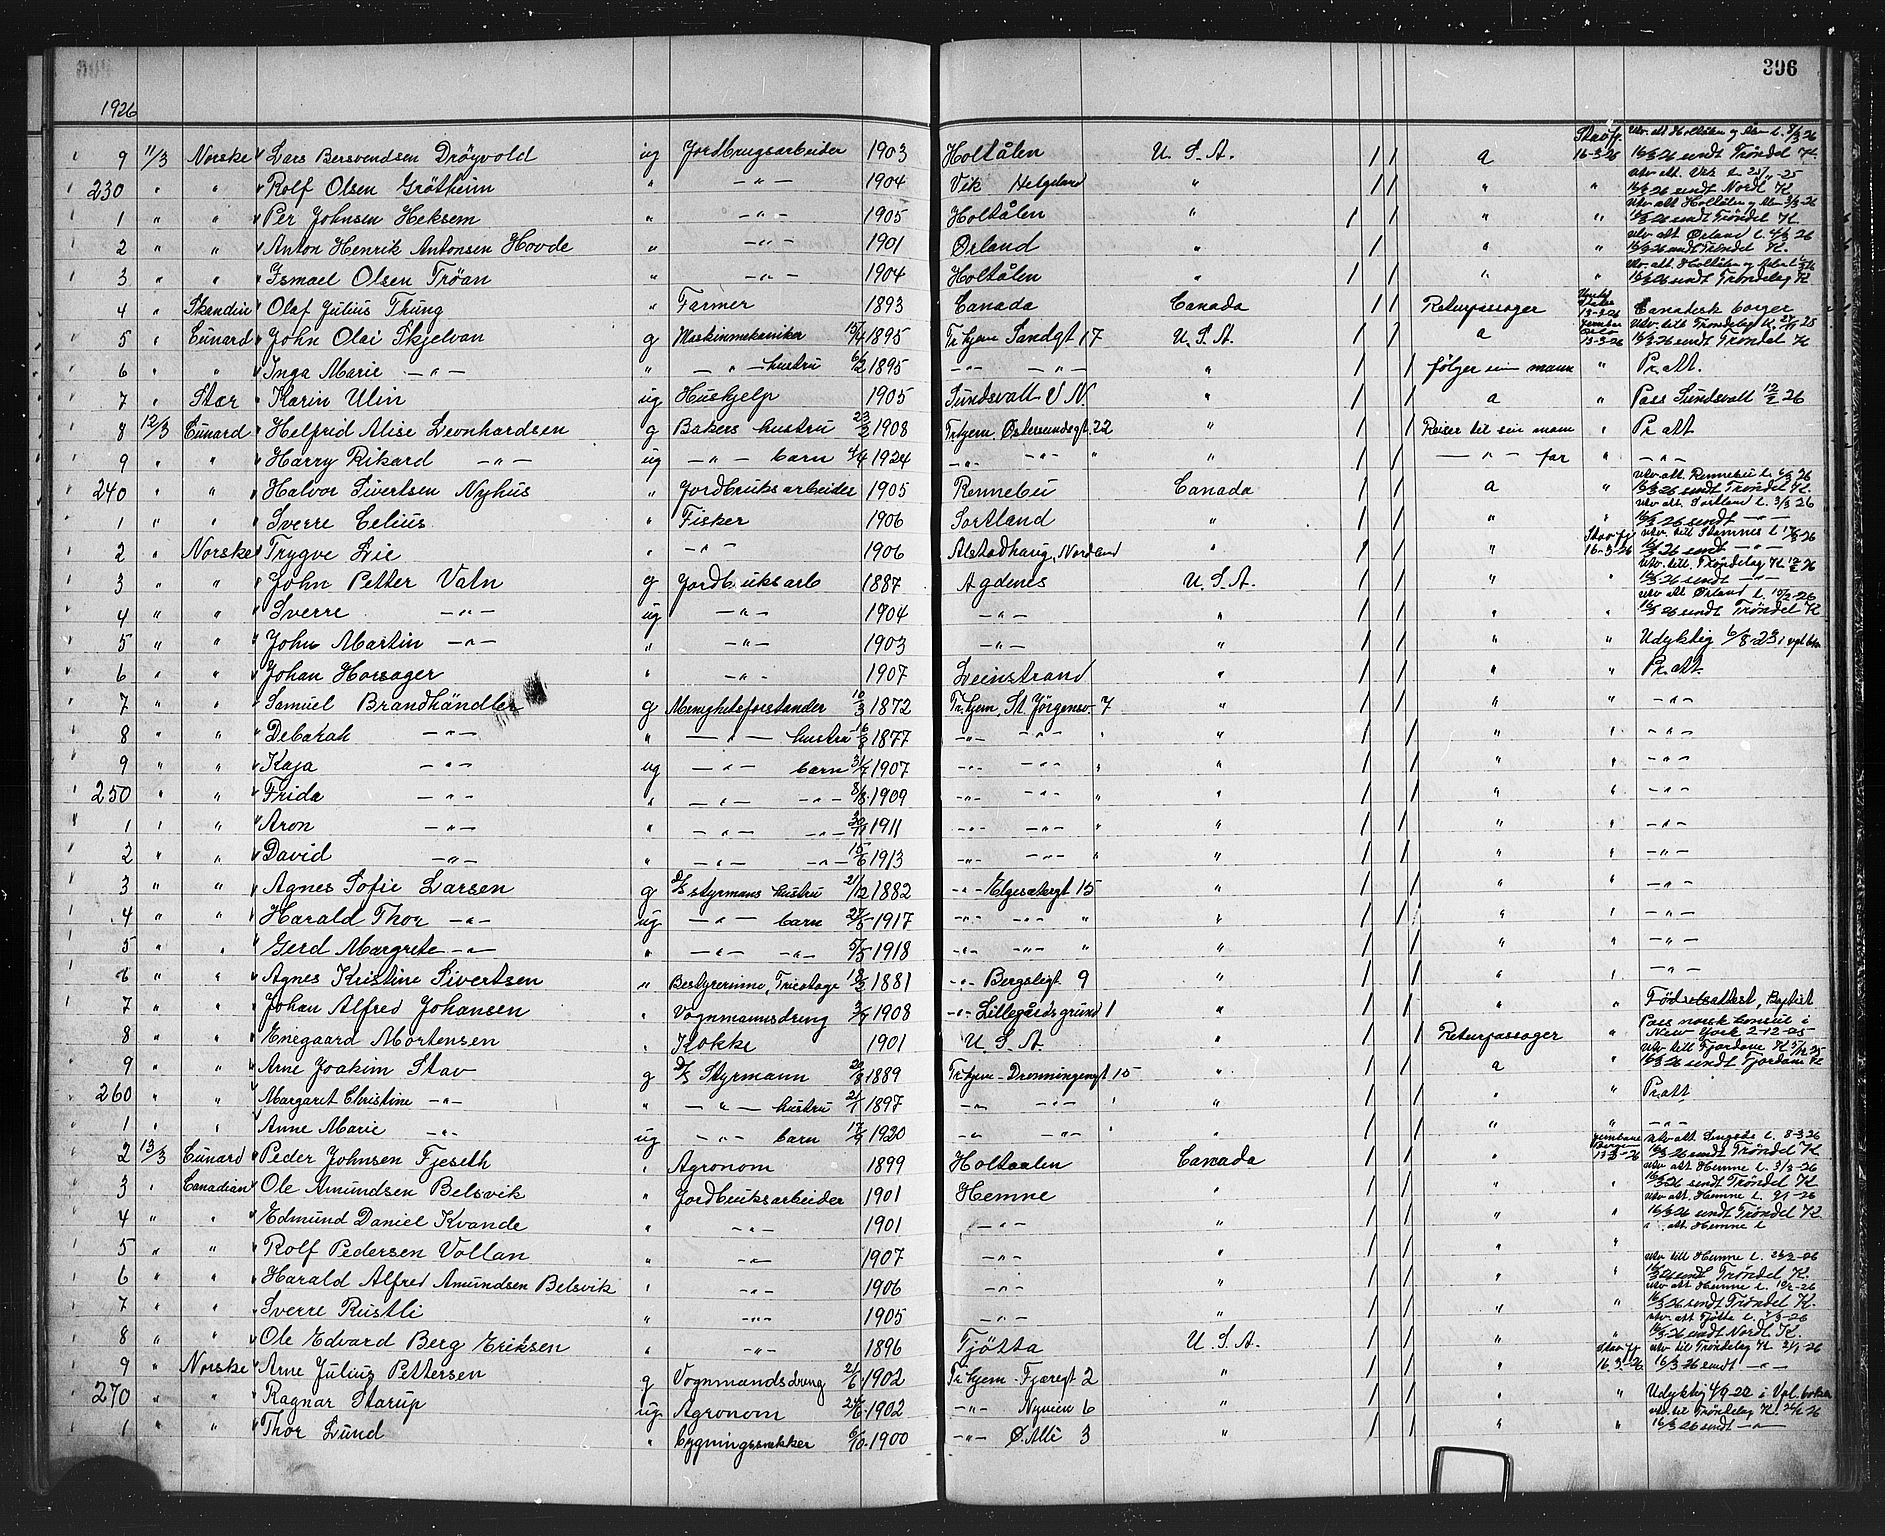 306
1926
9 11/3 Norske Lars Bersvendsen Dröyvold ug Jordbrugsarbeider 1903 Holtålen U. S. A. / / a Stavfj. 16-3-26 Utv. att Holtålen og Ålen l. 16/3 26 sendt Tröndel K.
230 " " Rolf Olsen Grötheim " —"— 1904 Vik Helgeland " / / " " utv. att. Vik l. 16/3 26 sendt Nordl K
1 " " Per Johnsen Heksem " —"— 1905 Holtålen " / / " " Utv. att Holtålen og Ålen 3/3-26 16/3-26 sendt Tröndel K
2 " " Anton Henrik Antonsen Hovde " —"— 1901 Ørland " / / " " utv att Ørland l. 4/3 26 16/3 26 sendt Tröndel K.
3 " " Ismael Olsen Tröan " —"— 1904 Holtålen " / / " " utv. att. Holtålen og Ålen l. 16/3 26 sendt Tröndelag K
4 " Skandin Olaf Julius Thung " Farmer 1893 Canada Canada / / Returpassager 13-2-26 Canadisk borger
5 " Cunard John Olai Skjelvan g Maskinmekaniker 15/4 1895 Tr.hjem Sandgt 17 U. S. A. / / a 13-3-26 Utv. till Tröndelag K. 16/3 26 sendt Tröndel K
6 " " Inga Marie —"— " —"— hustru 6/2 1895 —"— —"— " / / følger sin mann " Pr. att.
7 " Star Karin Ulin ug Hushjelp 1905 Sundsvall V. N. " / / a " Pass Sundsvall 12/2 26
8 12/3 Cunard Helfrid Alise Leonhardsen g Bakers hustru 23/2 1908 Tr.hjem. Östersundsgt. 22 " / / Reiser til sin mann " Pr att
9 " " Harry Rikard —"— ug —"— barn 4/4 1924 —"— —"— " " / / —"— far " —"—
240 " " Halvor Sivertsen Nyhus " Jordbruksarbeider 1905 Rennebu Canada / / a " utv att. Rennebu l. 6/3 26 16/3 26 sendt Tröndel K.
1 " " Sverre Celius " Fisker 1906 Sortland " / / " " utv att. Sortland l. 3/3 26 16/3 26 sendt —"—
2 " Norske Trygve Lie " —"— 1906 Alstadhaug, Nordland " / / " Stavfj 16-3-26 utv. till Stamnes l. 16/3 26 sendt —"—
3 " " John Petter Vatn g Jordbruksarb 1887 Agdenes U. S. A. / / " " utv. till. Tröndelag K 12/2 26 16/3 26 sendt —"—
4 " " Sverre —"— ug —"— 1904 —"— " / / " " utv att Ørland l. 10/2-26 16/3 26 sendt Tröndel K
5 " " John Martin —"— " —"— 1903 —"— " / / " " Udyktig 6/8-23 i vpl bok
6 " " Johan Horsager " —"— 1907 Leinstrand " / / " " Pr. att.
7 " " Samuel Brandhändler g Menighetsforstander 10/3 1872 Tr.hjem, St. Jörgensv. 7 " / / " " —"—
8 " " Debarah —"— " —"— hustru 1877 —"— —"— " " / / " " —"—
9 " " Kaja —"— ug —"— barn 31/7 1907 —"— —"— " " / / " " —"—
250 " " Frida —"— " —"— —"— 8/8 1909 —"— —"— " " / / " " —"—
1 " " Aron —"— " —"— —"— 30/11 1911 —"— —"— " " / / " " —"—
2 " " David —"— " —"— —"— 15/6 1913 —"— —"— " " / / " " —"—
3 " " Agnes Sofie Larsen g D/S styrmans hustru 21/12 1882 —"— Elgesetergt 15 " / / " " —"—
4 " " Harald Thor —"— ug —"— barn 27/5 1917 —"— —"— " " / / " " —"—
5 " " Gerd Margrete —"— " —"— —"— 5/5 1918 —"— —"— " " / / " " —"—
6 " " Agnes Kristine Sivertsen " Bestyrerinne, Tricotage 18/2 1881 —"— Bergsligt 9 " / / " " —"—
7 " " Johan Alfred Johansen " Vognmannsdreng 3/8 1908 —"— Lillegårdsgrund 1 " / / " " Födselsattest, Baptist
8 " " Enegaard Mortensen " Kokke 1901 U. S. A. " / / Returpassager " Pass norsk konsul i New York 2-12-25
9 " " Arne Joakim Stav g D/S Styrmann 20/8 1889 Tr.hjem - Dronningensgt 15 " / / a " utv. till Fjordane K 16/3 26 sendt Fjordane K
260 " " Margaret Christine —"— " —"— hustru 21/1 1897 —"— —"— " " / / " " Pr. att
1 " " Anne Marie —"— ug —"— barn 17/9 1920 —"— —"— " " / / " " —"—
2 13/3 Cunard Peder Johnsen Fjeseth " Agronom 1899 Holtaalen Canada / / " Jernbane Bergen 13-3-26 utv att. Singsås l. 8-3 26 16/3 26 sendt Tröndel K
3 " Canadian Ole Amundsen Belsvik " Jordbruksarbeider 1901 Hemne " / / " " utv att Hemne l. 3/3-26 16/3-26 sendt Tröndel K
4 " " Edmund Daniel Kvande " —"— 1901 —"— " / / " " utv att. Hemne l. 9/1-26 16/3 26 sendt Tröndel K.
5 " " Rolf Pedersen Vollan " —"— 1907 —"— " / / " " " att Hemne l
6 " " Harald Alfred Amundsen Belsvik " —"— 1906 —"— " / / " utv till Hemne l. 26/2-26 16/3 26 sendt Tröndel K.
7 " " Sverre Rustli " —"— 1905 —"— " / / " " utv att Hemne l. 19/2-26 16/3 26 sendt Tröndel K.
8 " " Ole Edvard Berg Eriksen " —"— 1896 Tjötta U. S. A. / / " " utv. att Tjötta l. 16/3-26 sendt Nordl. K.
9 " Norske Arne Julius Pettersen g Vognmandsdreng 21/6 1902 Tr.hjem - Fjæregt 2 " / / " Stavfj 16.3.26 utv til Tröndelag K 2/1-26 16/3 26 sendt —"—
270 " " Ragnar Starup ug Agronom 24/6 1902 —"— Nyveien 6 " / / " " Udyktig 4/9-22 i Vpl. boken
1 " " Thor Lund " bygningssnekker 6/10 1900 —"— Ø. Allé 3 " / / " " utv. til Tröndelag K. 26/2 26 16/3 26 sendt —"—